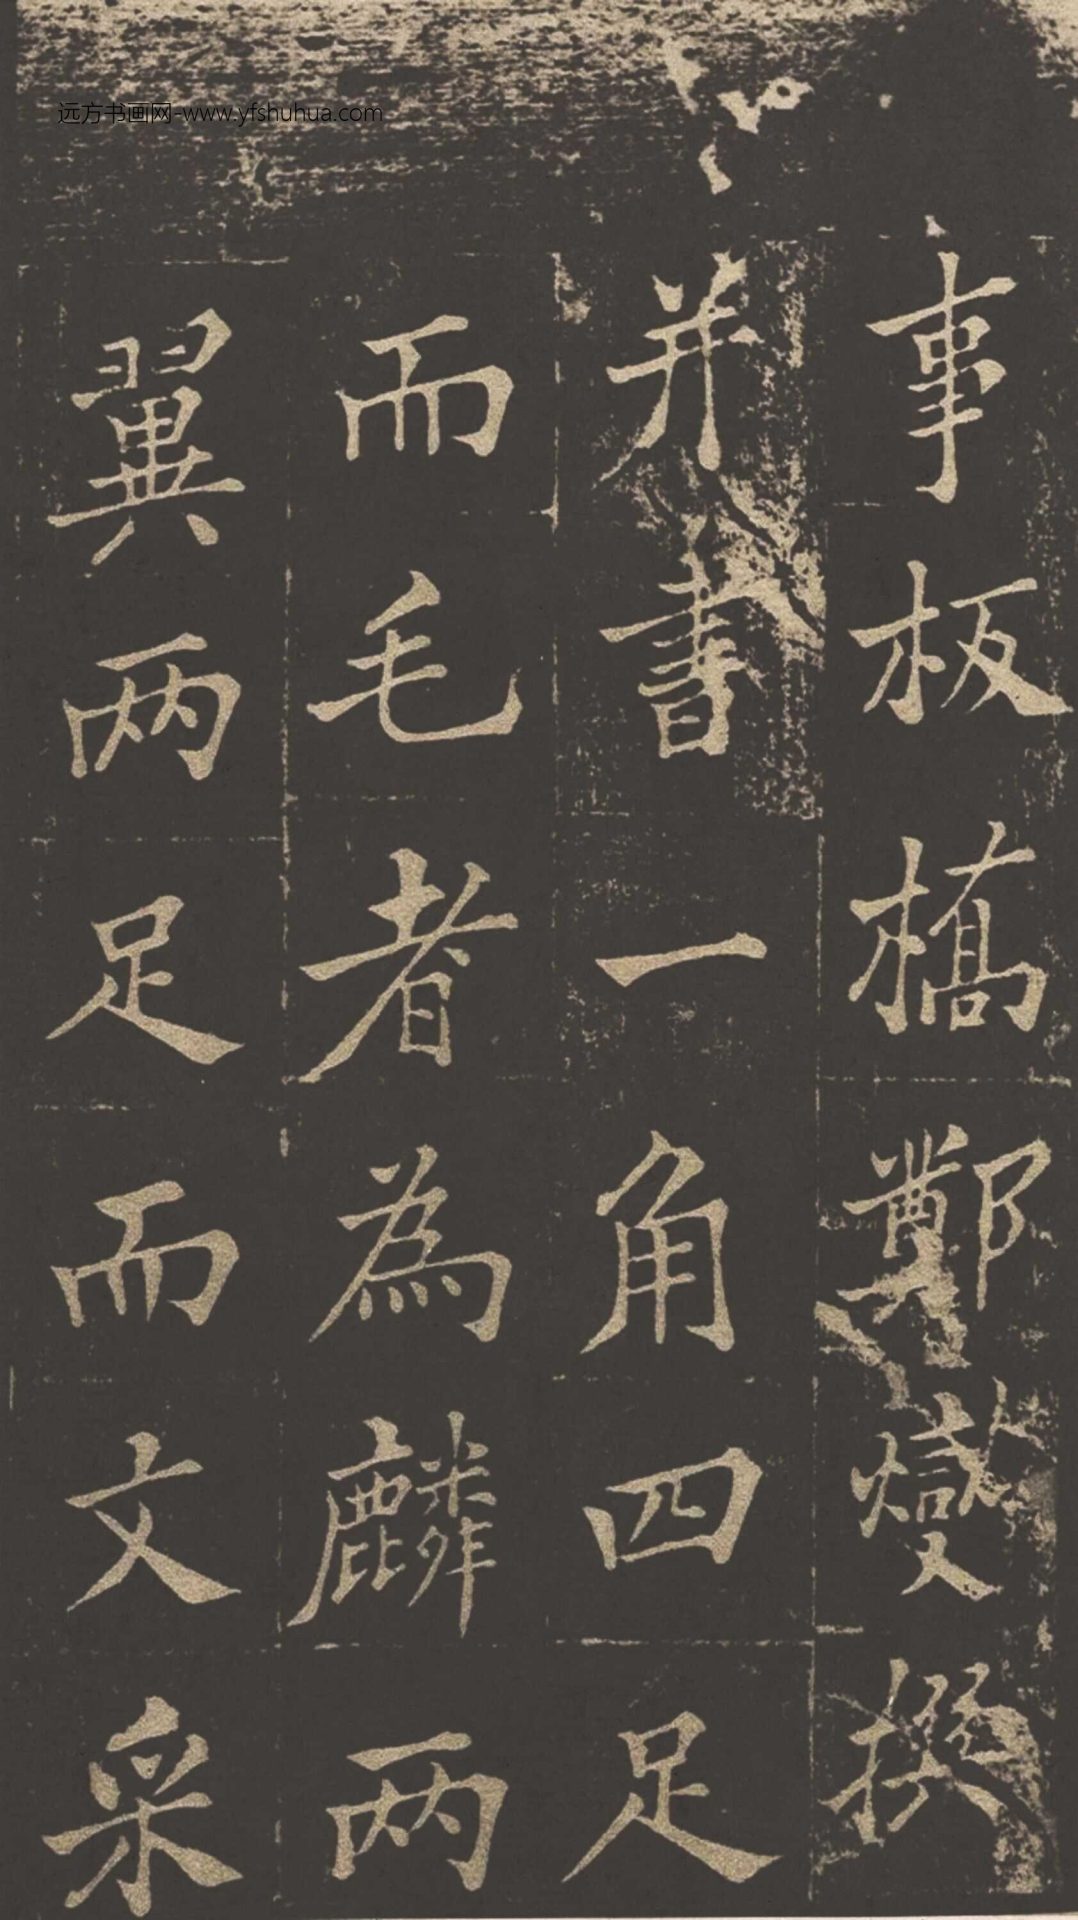 远方书画网-www.yfshuhua.com
事板橋鄭燮撰
并書一角四足
而毛者為麟兩
翼兩足而文采